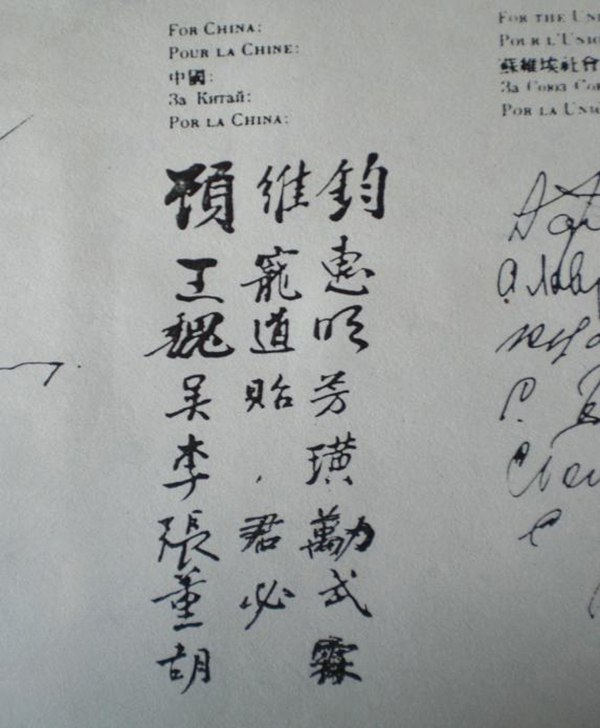 FOR CHINA:
POUR LA CHINE:
中國:
За Китай:
POR LA CHINA:
顧維鈞
王寵惠
魏道明
吳貽芳
李璜
張君勱
董必武
胡霖
FOR THE
POUR L'
蘇維埃社會
За Союз
POR LA